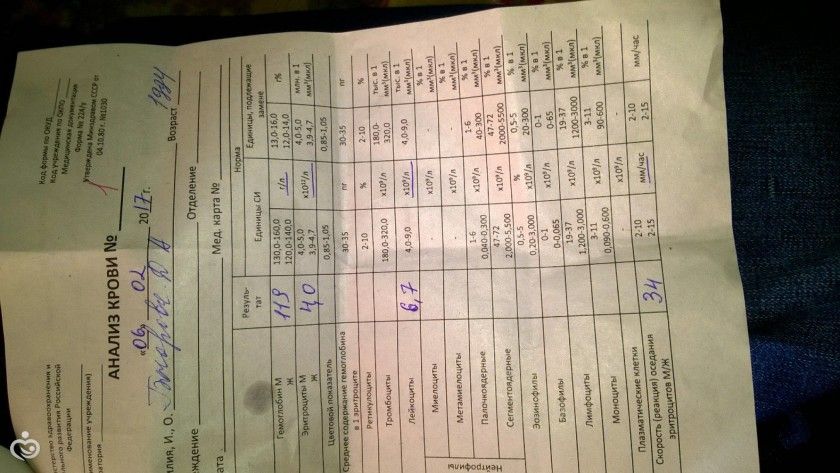 Код формы по ОКУД
Код учреждения по ОКПО
Медицинская документация
Форма № 224/у
утверждена Минздравом СССР от
04.10.80 г. №1030
терство здравоохранения и
льного развития Российской
Федерации
именование учреждения)
АНАЛИЗ КРОВИ №
1
«06» 02 2017 г.
илия, И., О.
Возраст 1994
ждение
Отделение
Мед. карта №
Резуль-
тат
Норма
Единицы СИ
Единицы, подлежащие
замене
Гемоглобин М 119 130,0-160,0 г/л 13,0-16,0 г%
Ж 120,0-140,0 12,0-14,0
Эритроциты М 4,0 4,0-5,0 х10¹²/л 4,0-5,0 млн. в 1
Ж 3,9-4,7 3,9-4,7 мм³(мкл)
Цветовой показатель 0,85-1,05 0,85-1,05
Среднее содержание гемоглобина
в 1 эритроците 30-35 пг 30-35 пг
Ретикулоциты 2-10 % 2-10 %
Тромбоциты 180,0-320,0 х10⁹/л 180,0- тыс. в 1
320,0 мм³(мкл)
Лейкоциты 6,7 4,0-9,0 х10⁹/л 4,0-9,0 тыс. в 1
мм³(мкл)
Нейтрофилы
Миелоциты - - - % в 1
х10⁹/л мм³(мкл)
Метамиелоциты - - - % в 1
х10⁹/л мм³(мкл)
Палочкоядерные 1-6 1-6 % в 1
0,040-0,300 х10⁹/л 40-300 мм³(мкл)
Сегментоядерные 47-72 47-72 % в 1
2,000-5,500 х10⁹/л 2000-5500 мм³(мкл)
Эозинофилы 0,5-5 % 0,5-5 % в 1
0,20-3,000 х10⁹/л 20-300 мм³(мкл)
Базофилы 0-1 0-1 % в 1
0-0,065 х10⁹/л 0-65 мм³(мкл)
Лимфоциты 19-37 19-37 % в 1
1,200-3,000 х10⁹/л 1200-3000 мм³(мкл)
Моноциты 3-11 3-11 % в 1
0,090-0,600 х10⁹/л 90-600 мм³(мкл)
Плазматические клетки - х10⁹/л -
Скорость (реакция) оседания 34 2-10 мм/час 2-10 мм/час
эритроцитов М/Ж 2-15 2-15